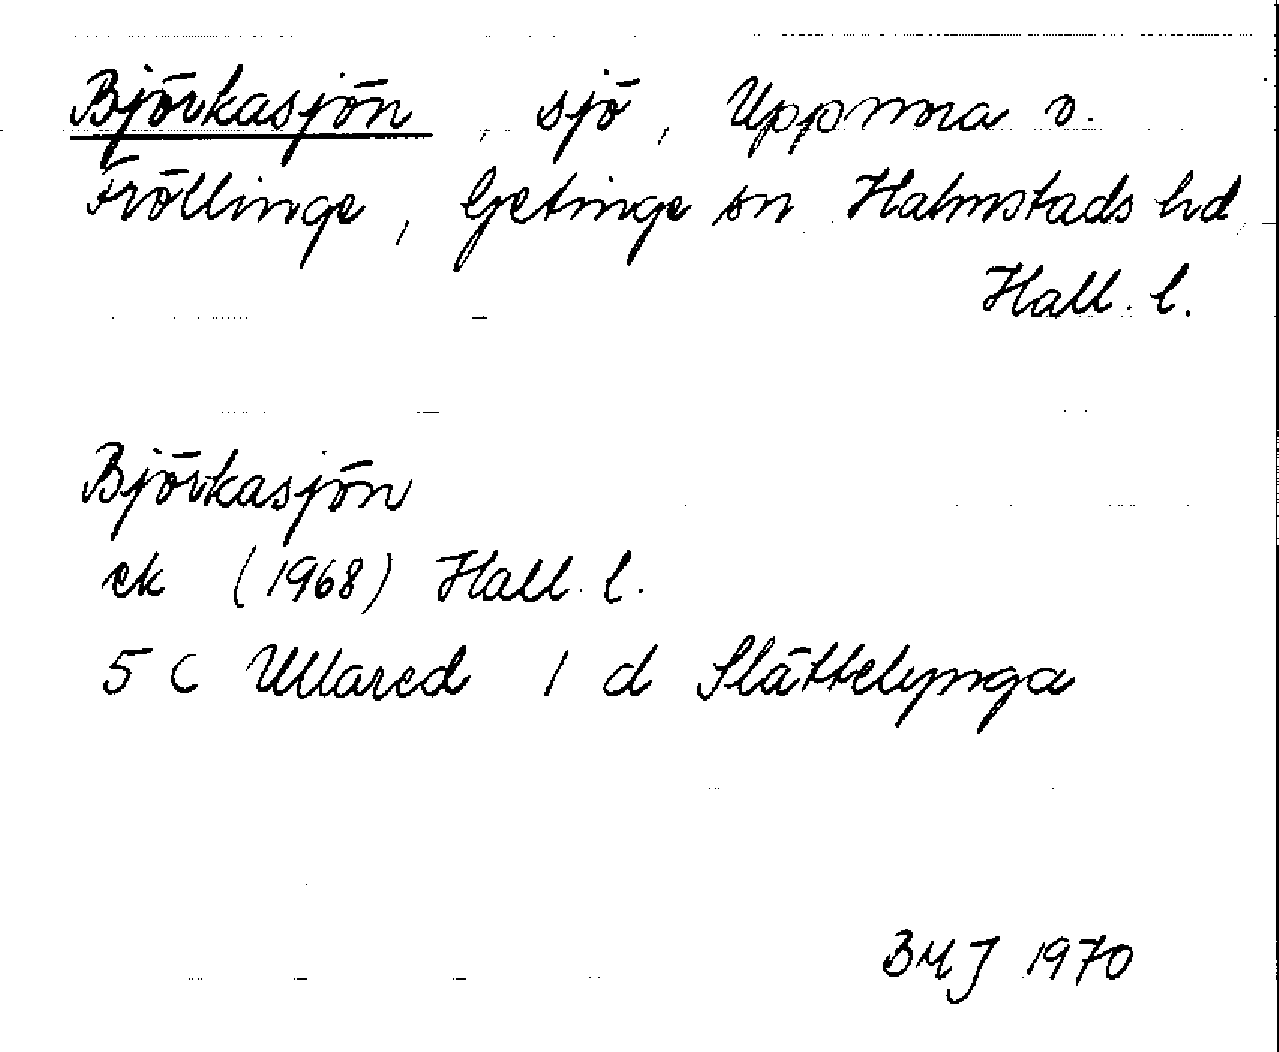 Björkasjön, sjö, Uppmora o.
Fröllinge, Getinge sn Halmstads hd,
Hall. l.
Björkasjön
ek (1968) Hall. l.
5 C Ullared 1 d Slättelynga
BMJ 1970